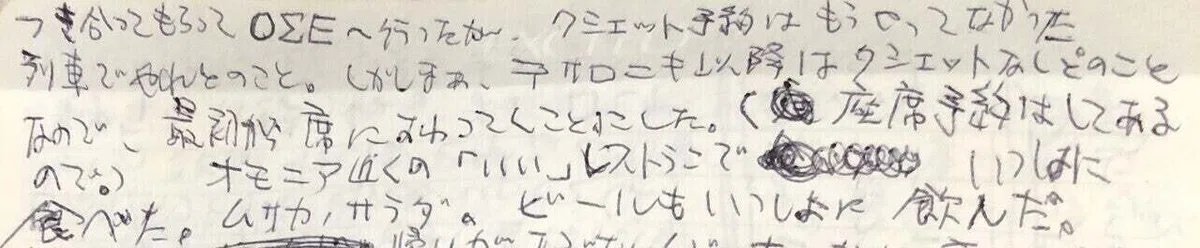 つき合ってもらってΟΣΕへ行ったが、クシェット予約はもうやってなかった
列車でやれとのこと。しかしまあ、テサロニキ以降はクシェットなしとのこと
なので、最初から席にすわってくことにした。(座席予約はしてある
ので。) オモニア近くの「いい」レストランで いっしょに
食べた。ムサカ、サラダ。ビールもいっしょに飲んだ。